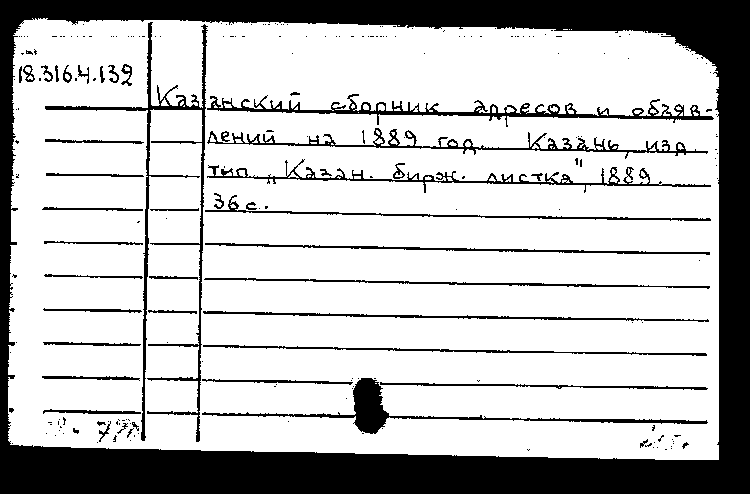 18.316.4.132
Казанский сборник адресов и объяв-
лений на 1889 год. Казань, изд.
тип. „Казан. бирж. листка", 1889.
36 с.